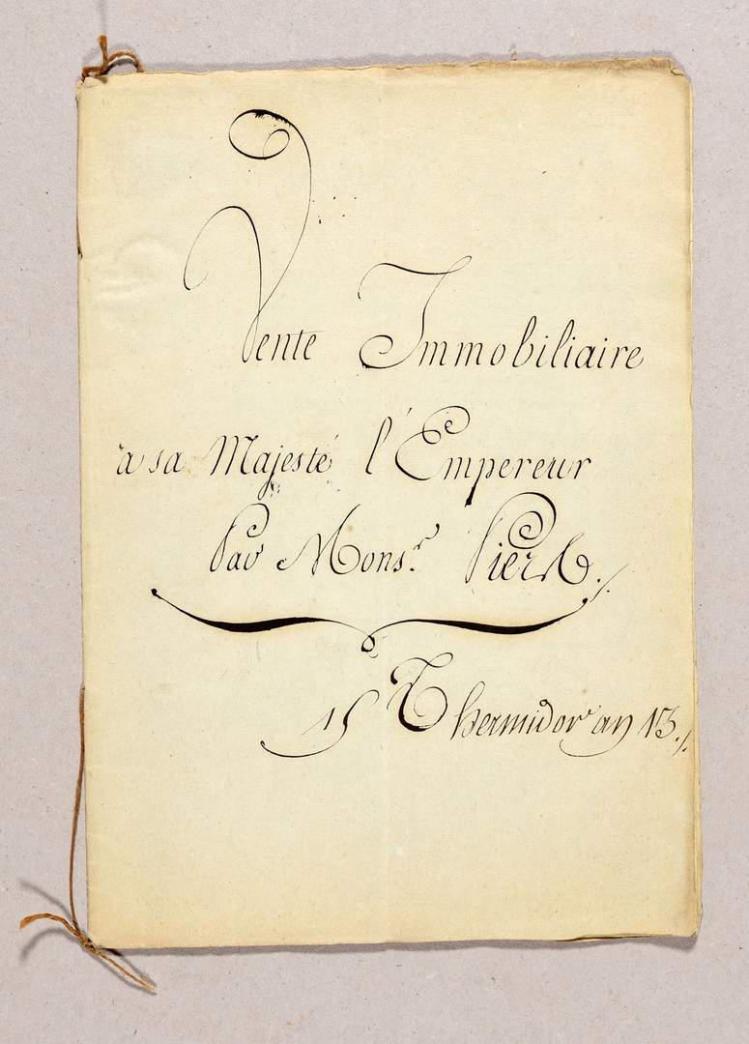 Vente Immobiliaire
a sa Majesté l'Empereur
Par Monsr.
15 Thermidor an 13./.